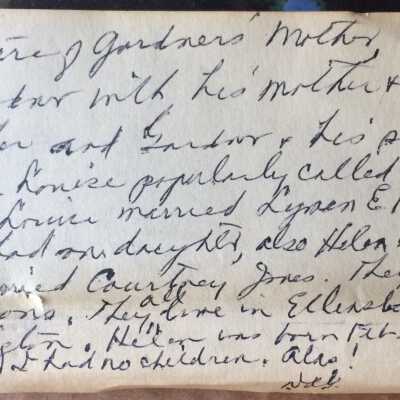 of Gardners' Mother,
with his mother &
and Gardner & his
Louise popularly called
Louise married Lyman E
had one daughter, also Helen
Courtney Jones. They
They all live in Ellensb
Helen was born Feb
I had no children. Alas!